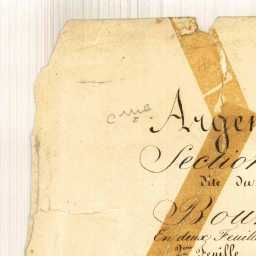 Argen
Section
dite du
Bou
En deux Feuill
2me Feuille